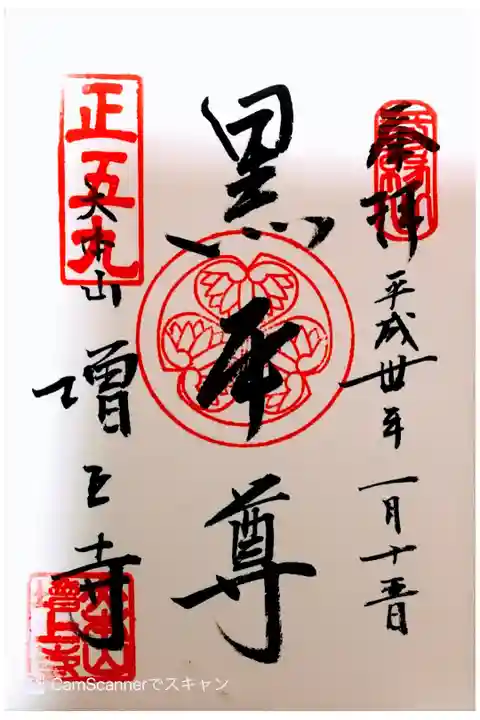 奉拝
平成卅年一月十五日
黒本尊
正五九
大本山
増上寺
大本山
増上寺
CamScannerでスキャン